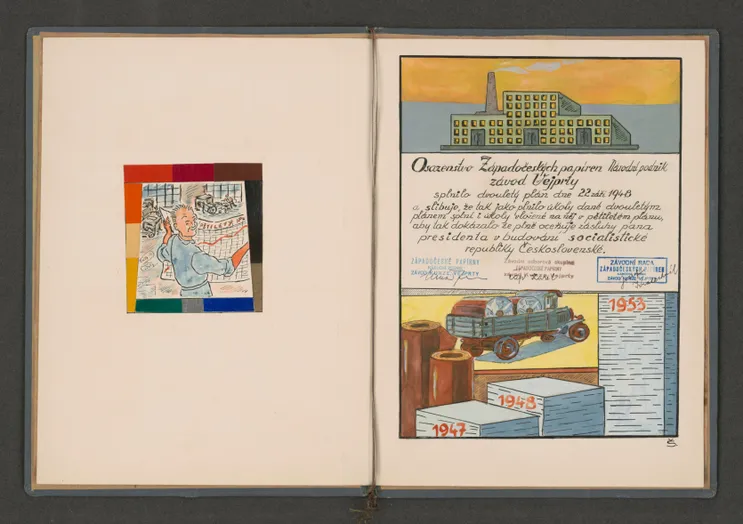 Osazenstvo Západočeských papíren Národní podnik
závod Vejprty
splnilo dvouletý plán dne 22 září 1948
a slibuje, že tak jako plnilo úkoly dané dvouletým
plánem splní i úkoly vložené na něj v pětiletém plánu,
aby tak dokázalo že plně oceňuje zásluhy pana
presidenta v budování socialistické
republiky Československé.
ZÁPADOČESKÉ PAPÍRNY
ZÁVOD VEJPRTY
ZÁPADOČESKÉ PAPÍRNY
ZÁVODNÍ RADA
ZÁPADOČESKÝCH PAPÍREN
1953
1948
1947